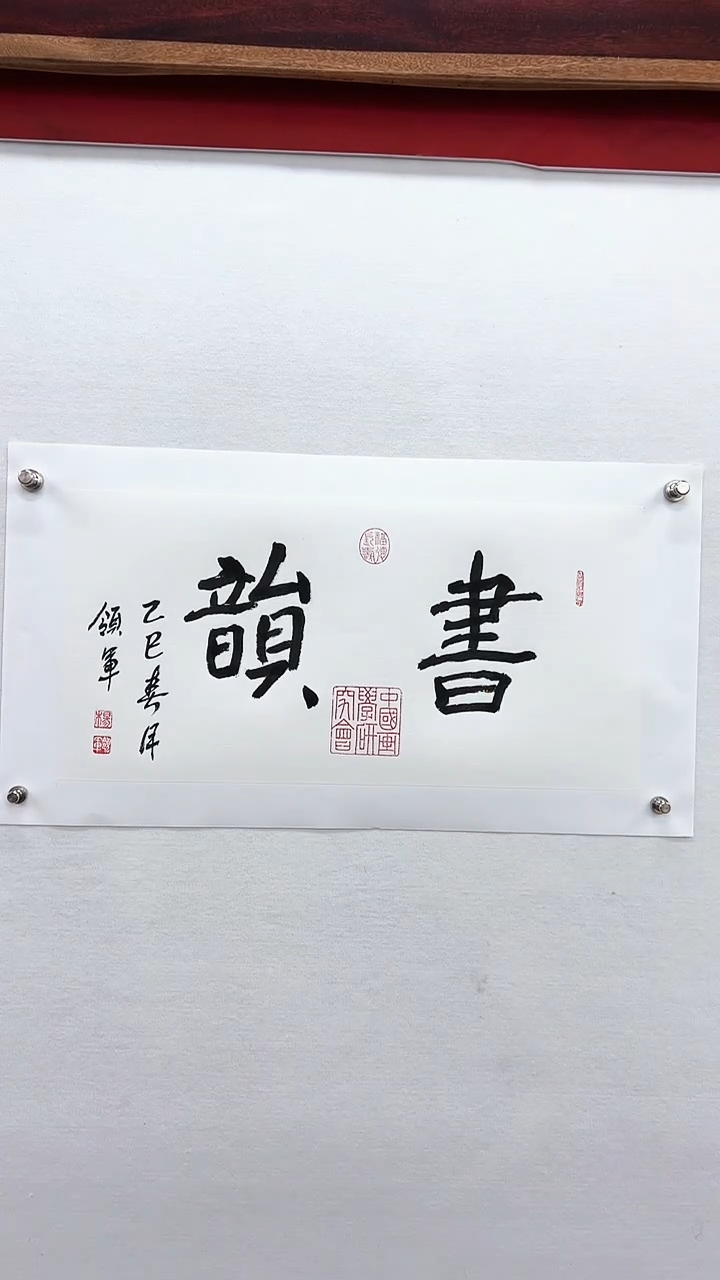 書韻
乙巳春月
領軍
中國画
學研
究會